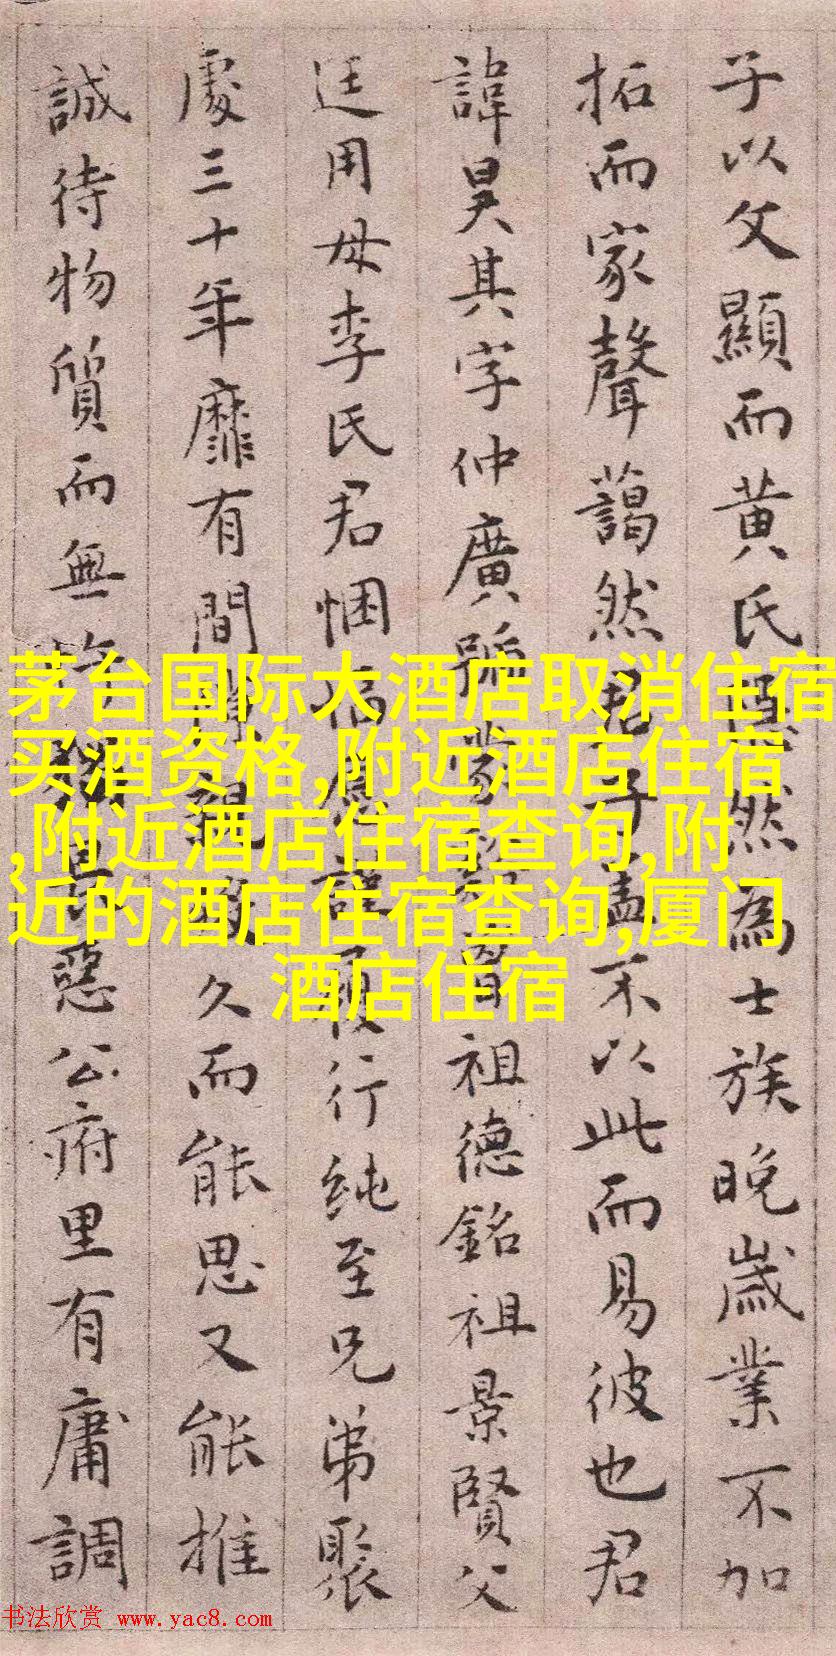 子以父顯而黄氏然為士族晚歲業不加
拓而家聲藹然君子盖不以此而易彼也君
諱昊其字仲廣號蒙祖德銘祖景賢父
廷用母李氏君悃愊履行纯至兄弟聚
處三十年靡有間久而能思又能推
誠待物質而無惡公府里有庸調
茅台国际大酒店取消住宿
买酒资格,附近酒店住宿
,附近酒店住宿查询,附
近的酒店住宿查询,厦门
酒店住宿
书法欣赏 www.yac8.com